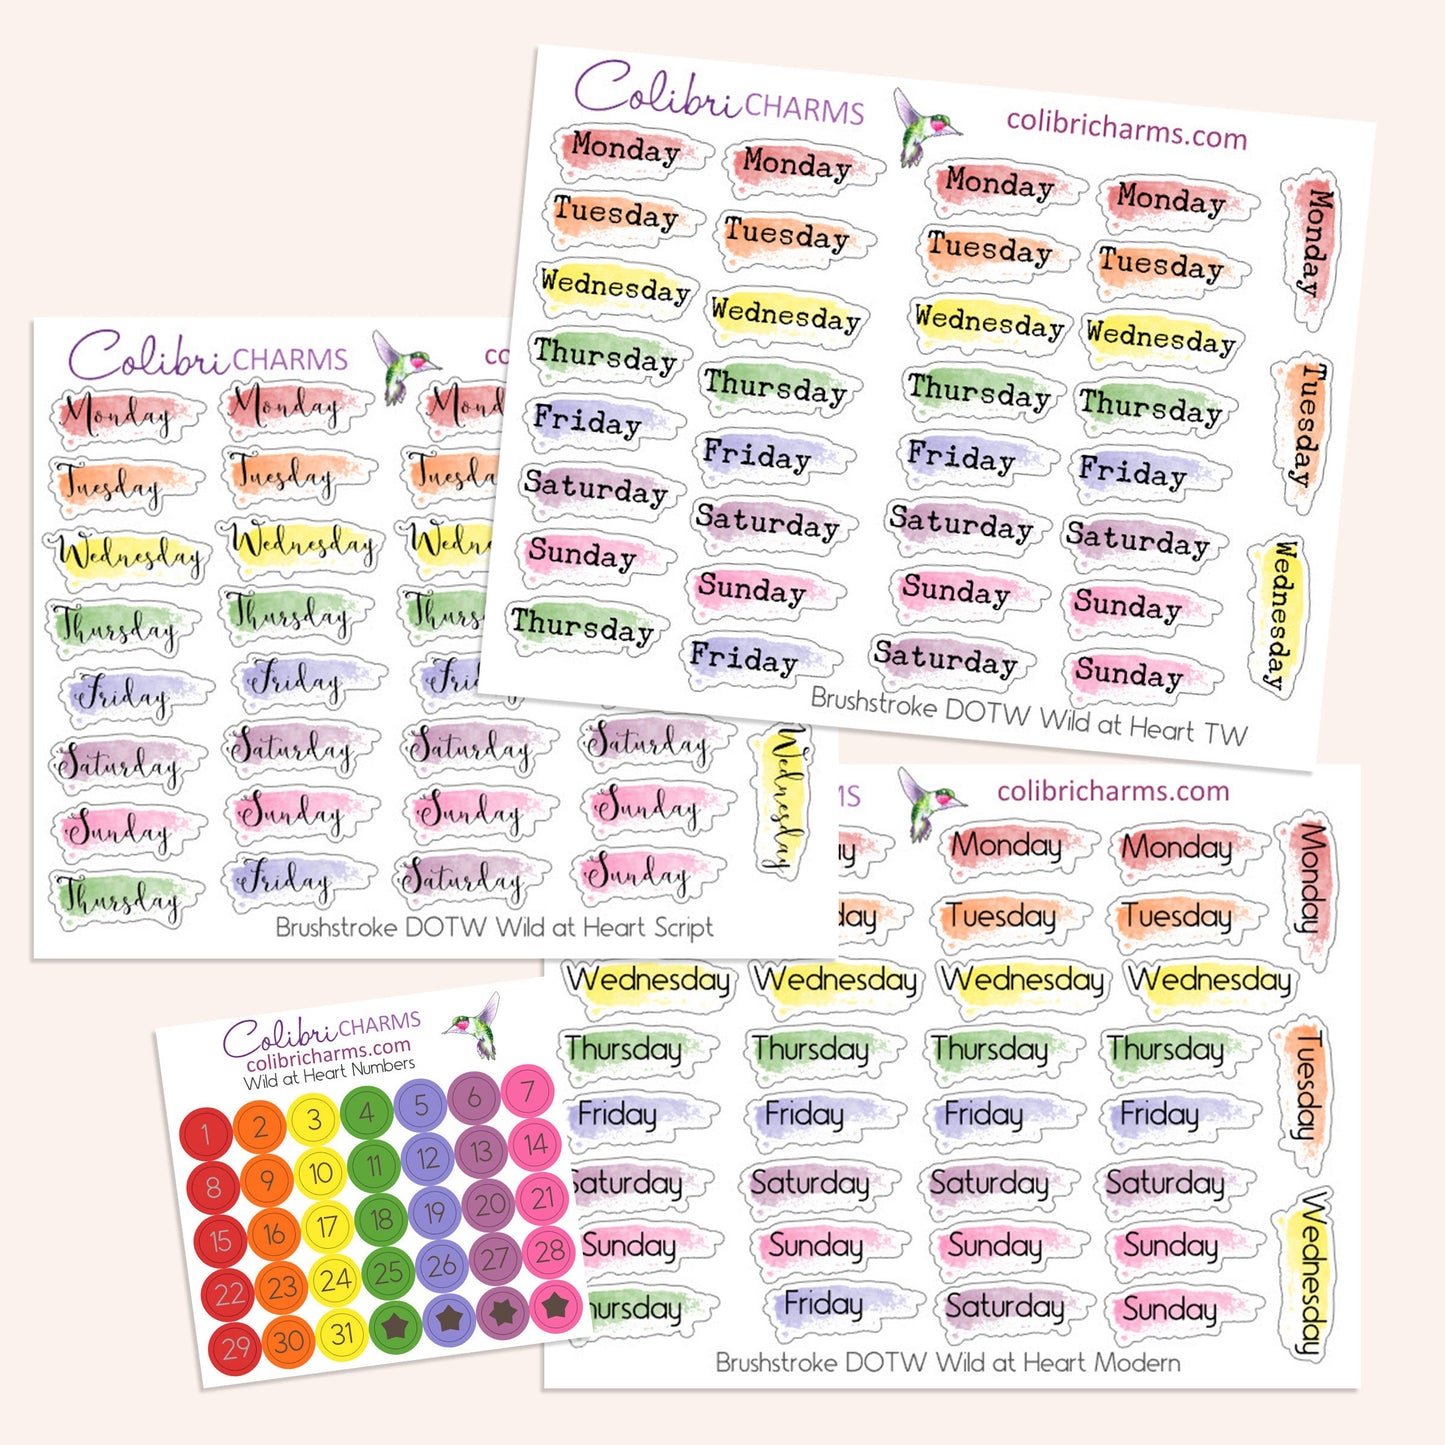 Colibri CHARMS colibricharms.com
Monday Monday Monday Monday
Tuesday Tuesday Tuesday Tuesday
Wednesday Wednesday Wednesday Wednesday
Thursday Thursday Thursday Thursday
Friday Friday Friday Friday
Saturday Saturday Saturday Saturday
Sunday Sunday Sunday Sunday
Thursday Friday Saturday Sunday
Monday
Tuesday
Wednesday
Brushstroke DOTW Wild at Heart TW
Colibri CHARMS
Monday Monday
Tuesday Tuesday
Wednesday Wednesday
Thursday Thursday Thursday
Friday Friday
Saturday Saturday Saturday Saturday
Sunday Sunday Sunday Sunday
Thursday Friday Saturday Sunday
Wednesday
Brushstroke DOTW Wild at Heart Script
colibricharms.com
Monday Monday
Tuesday Tuesday
Wednesday Wednesday Wednesday Wednesday
Thursday Thursday Thursday Thursday
Friday Friday Friday Friday
Saturday Saturday Saturday Saturday
Sunday Sunday Sunday Sunday
Friday Saturday Sunday
Monday
Tuesday
Wednesday
Brushstroke DOTW Wild at Heart Modern
Colibri CHARMS
colibricharms.com
Wild at Heart Numbers
1 2 3 4 5 6 7
8 9 10 11 12 13 14
15 16 17 18 19 20 21
22 23 24 25 26 27 28
29 30 31